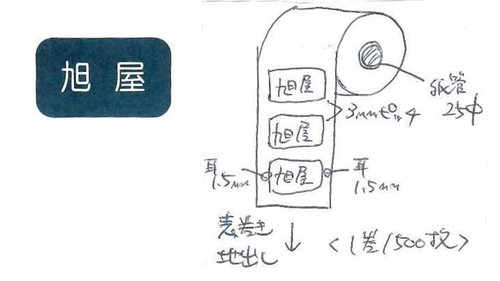 旭屋
旭屋
紙管
25φ
3mm
旭屋
耳
1.5mm
旭屋
耳
1.5mm
表巻き
地出し
<1巻/500枚>